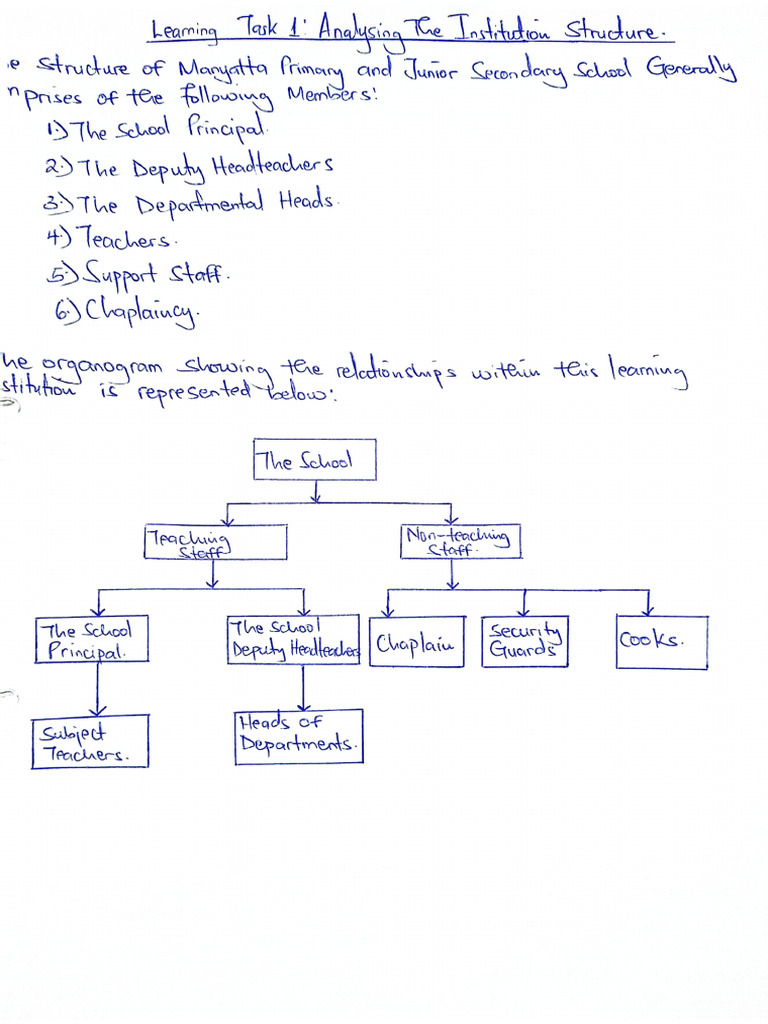 Learning Task 1: Analysing The Institution Structure.
e Structure of Manyatta Primary and Junior Secondary School Generally
prises of the following Members:
1.) The School Principal.
2.) The Deputy Headteachers
3.) The Departmental Heads.
4.) Teachers.
5.) Support Staff.
6.) Chaplaincy.
he organogram showing the relationships within this learning
stitution is represented below:
The School
Teaching
Staff
Non-teaching
Staff.
The School
Principal.
The School
Deputy Headteachers
Chaplain
Security
Guards
Cooks.
Subject
Teachers.
Heads of
Departments.